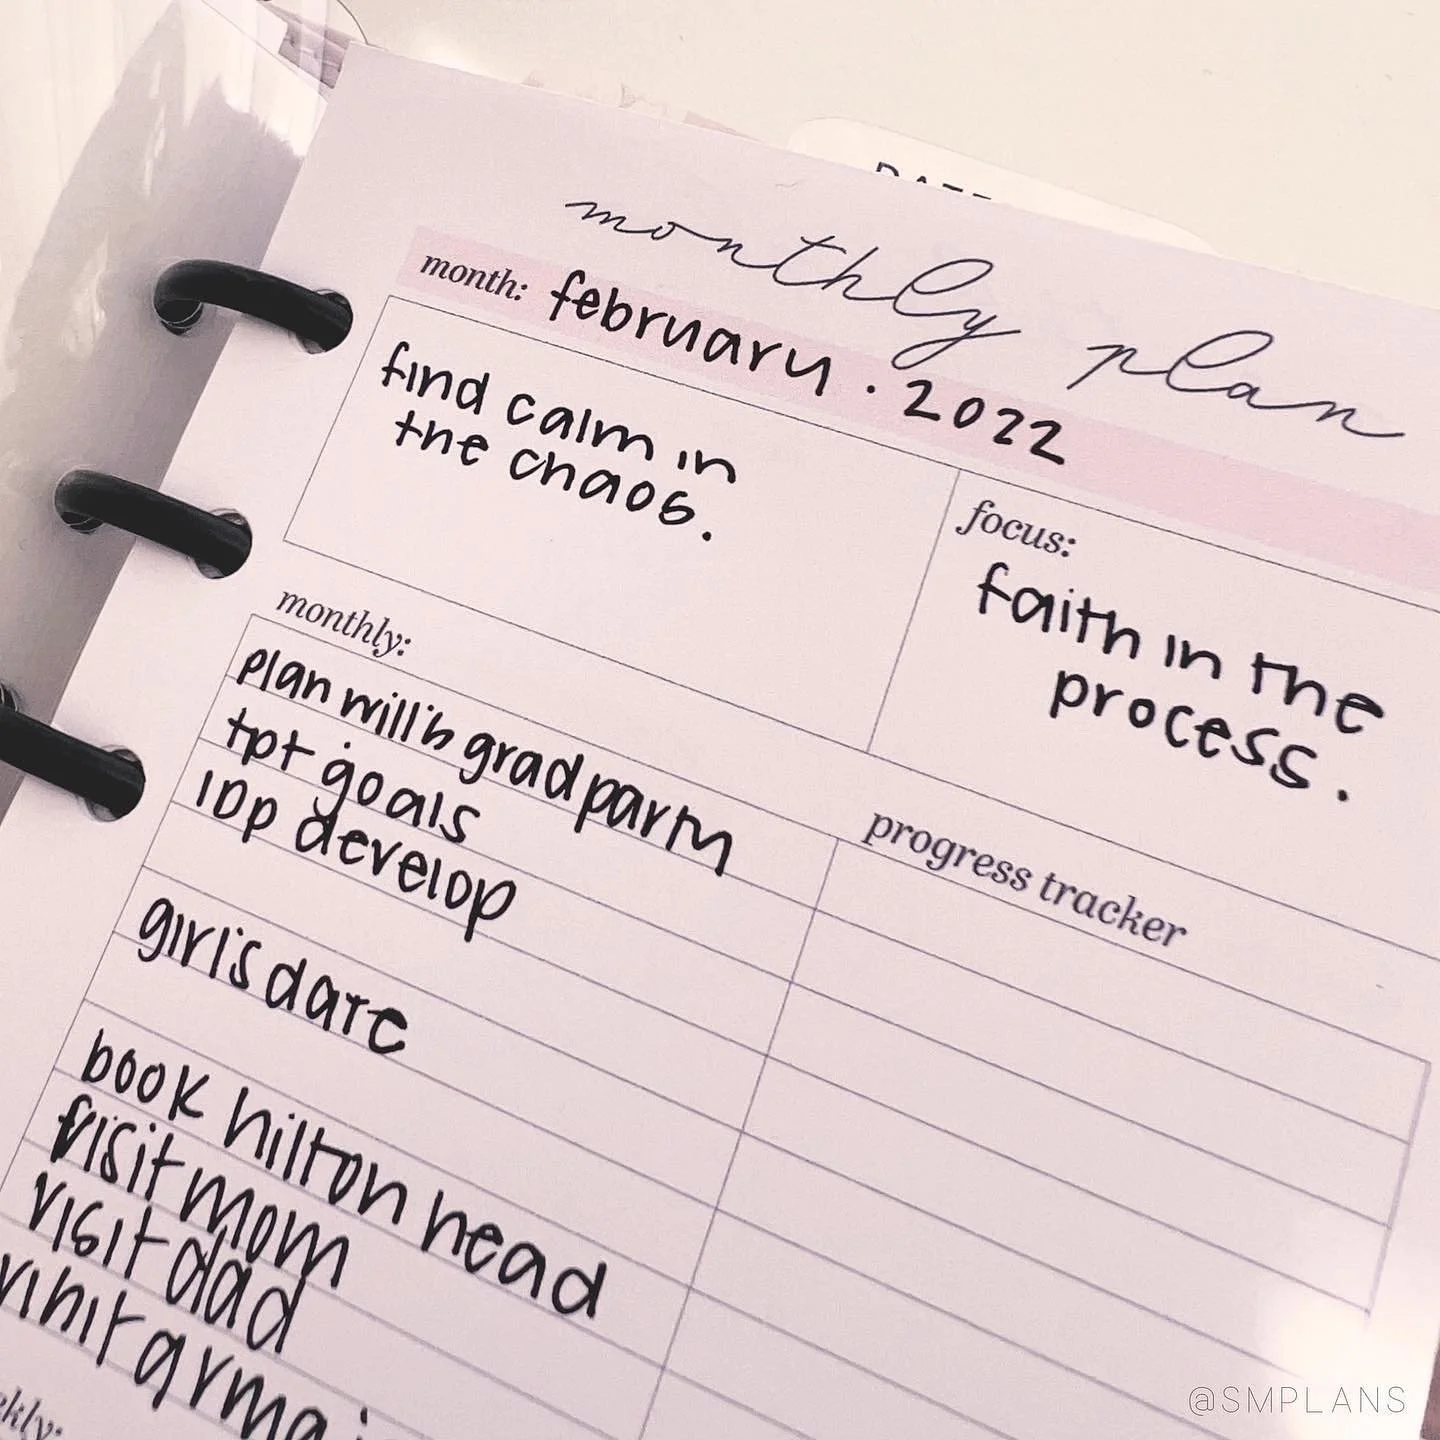 DATE
monthly plan
month: february · 2022
find calm in
the chaos.
focus:
faith in the
process.
monthly:
plan will's grad party
tpt goals
IDP develop
progress tracker
girl's date
book hilton head
visit mom
visit dad
@SMPLANS